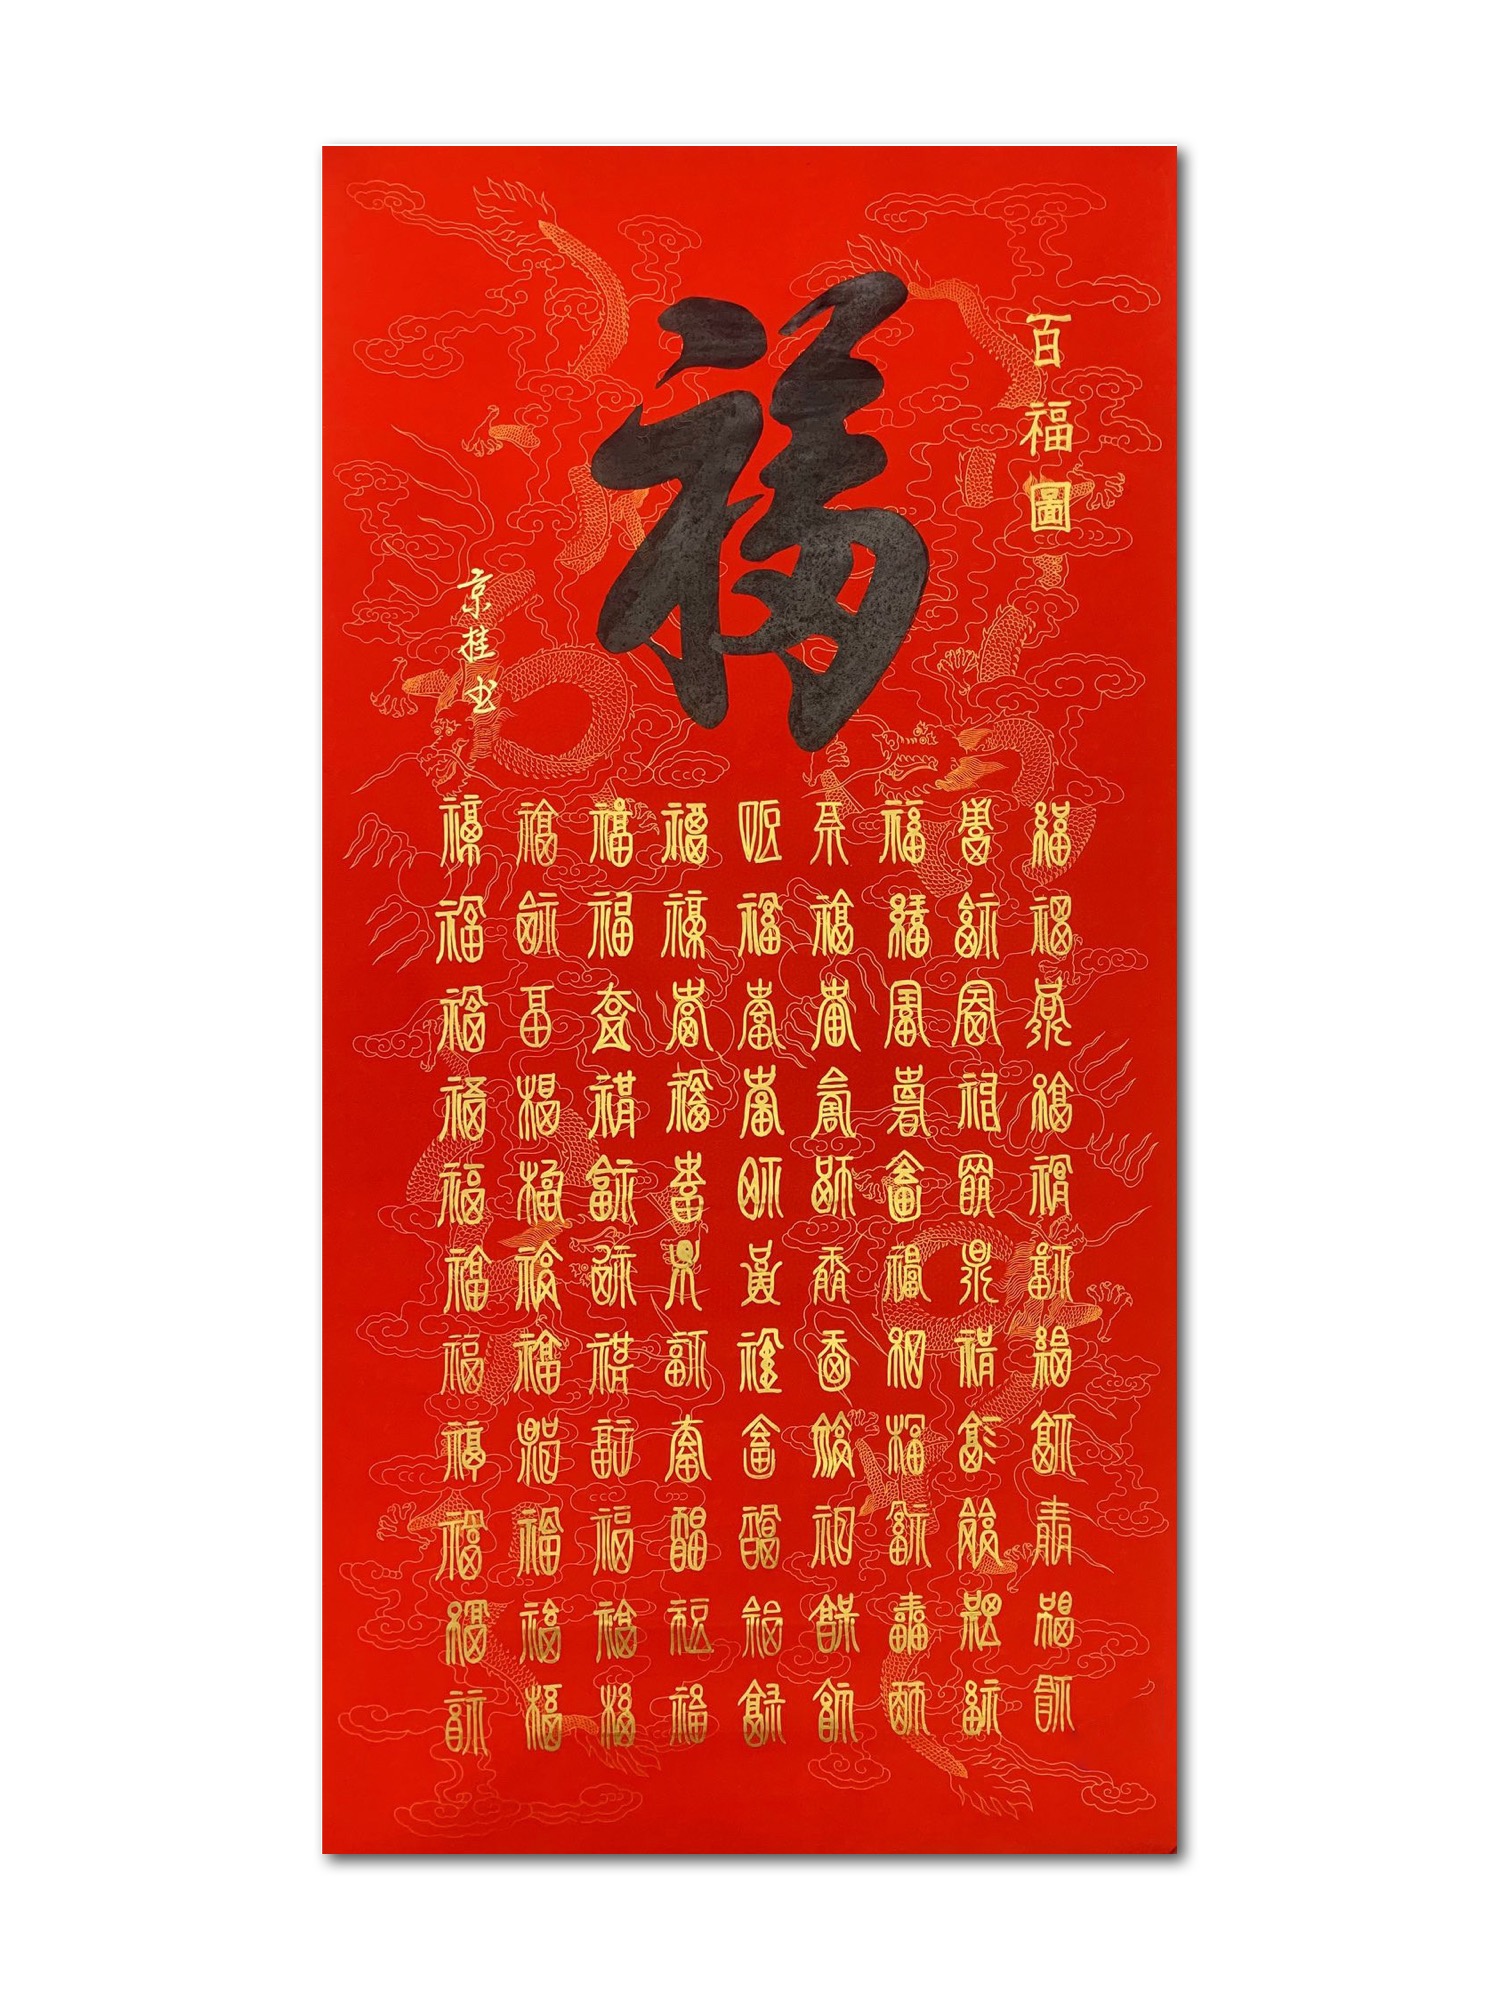 百福圖
福
京桂书
福福福福福福福福福
福福福福福福福福福
福福福福福福福福福
福福福福福福福福福
福福福福福福福福福
福福福福福福福福福
福福福福福福福福福
福福福福福福福福福
福福福福福福福福福
福福福福福福福福福
福福福福福福福福福